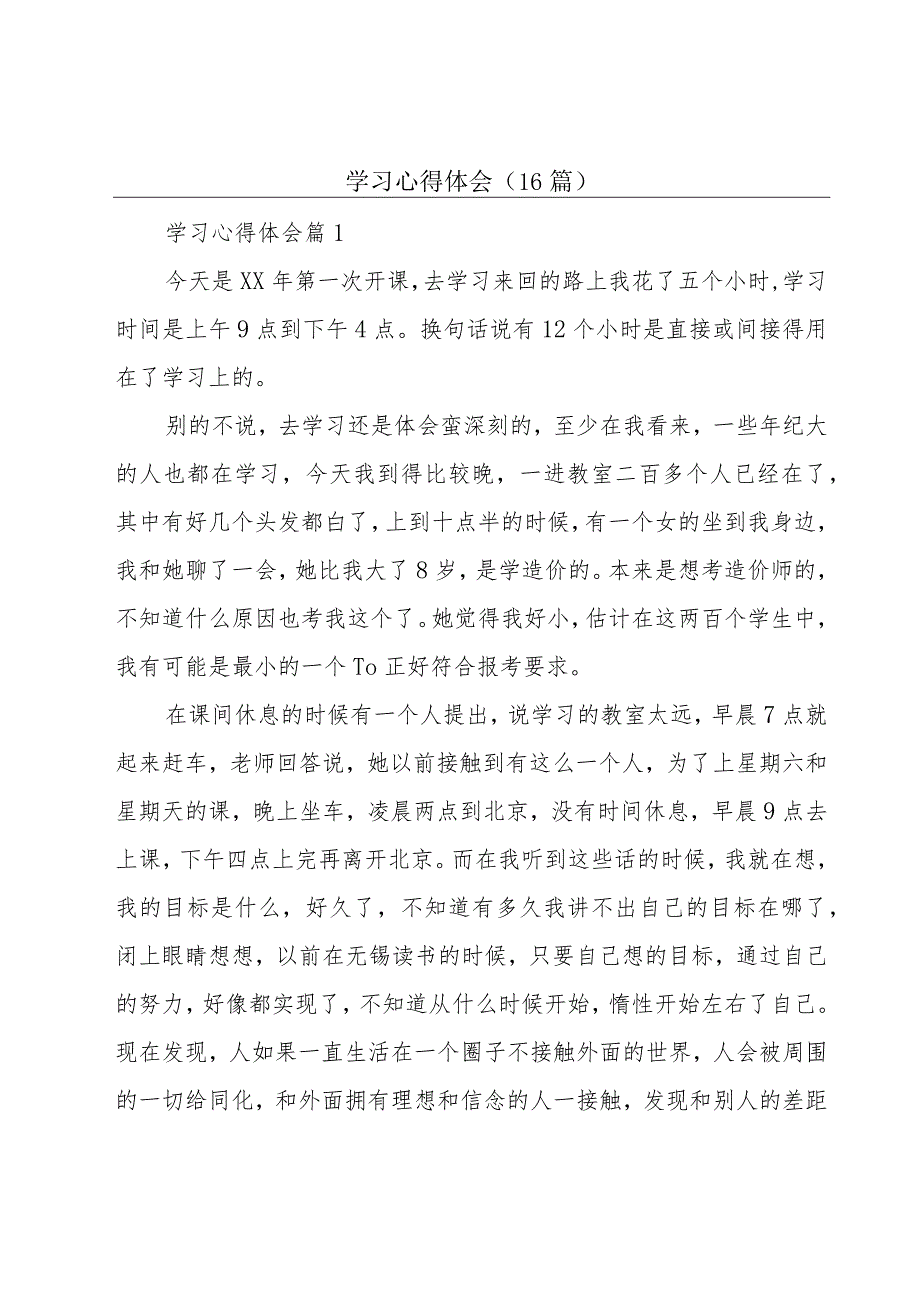 学习心得体会（16 篇）
学习心得体会篇 1
今天是 XX 年第一次开课，去学习来回的路上我花了五个小时,学习
时间是上午 9 点到下午 4 点。换句话说有 12 个小时是直接或间接得用
在了学习上的。
别的不说，去学习还是体会蛮深刻的，至少在我看来，一些年纪大
的人也都在学习，今天我到得比较晚，一进教室二百多个人已经在了，
其中有好几个头发都白了，上到十点半的时候，有一个女的坐到我身边，
我和她聊了一会，她比我大了 8 岁，是学造价的。本来是想考造价师的，
不知道什么原因也考我这个了。她觉得我好小，估计在这两百个学生中，
我有可能是最小的一个 To 正好符合报考要求。
在课间休息的时候有一个人提出，说学习的教室太远，早晨 7 点就
起来赶车，老师回答说，她以前接触到有这么一个人，为了上星期六和
星期天的课，晚上坐车，凌晨两点到北京，没有时间休息，早晨 9 点去
上课，下午四点上完再离开北京。而在我听到这些话的时候，我就在想，
我的目标是什么，好久了，不知道有多久我讲不出自己的目标在哪了，
闭上眼睛想想，以前在无锡读书的时候，只要自己想的目标，通过自己
的努力，好像都实现了，不知道从什么时候开始，惰性开始左右了自己。
现在发现，人如果一直生活在一个圈子不接触外面的世界，人会被周围
的一切给同化，和外面拥有理想和信念的人一接触，发现和别人的差距